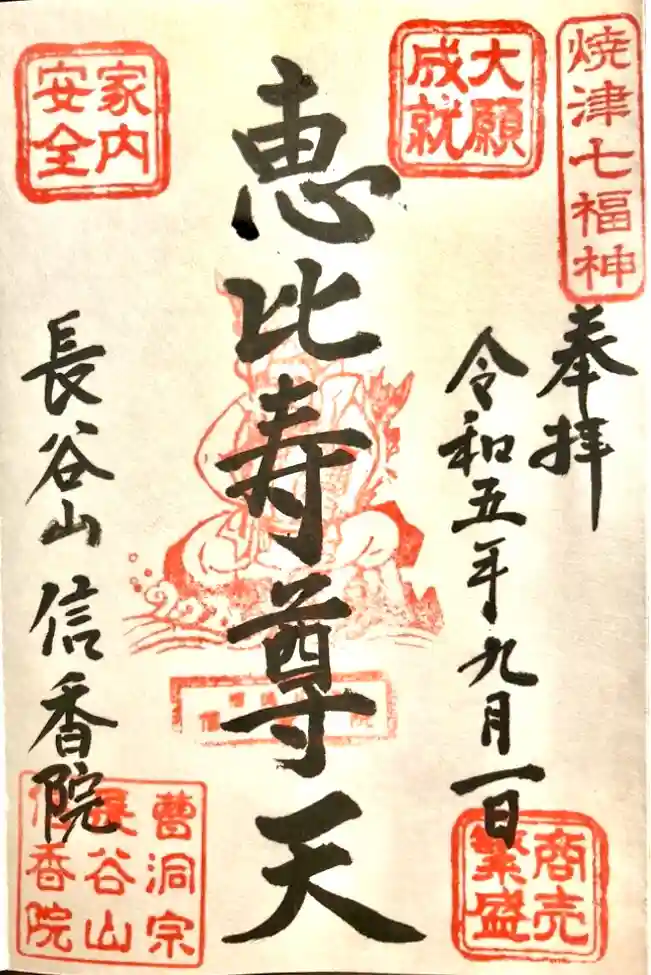 焼津七福神
奉拝
大願
成就
令和五年九月一日
商売
繁盛
恵比寿尊天
家内
安全
長谷山信香院
曹洞宗
長谷山
信香院